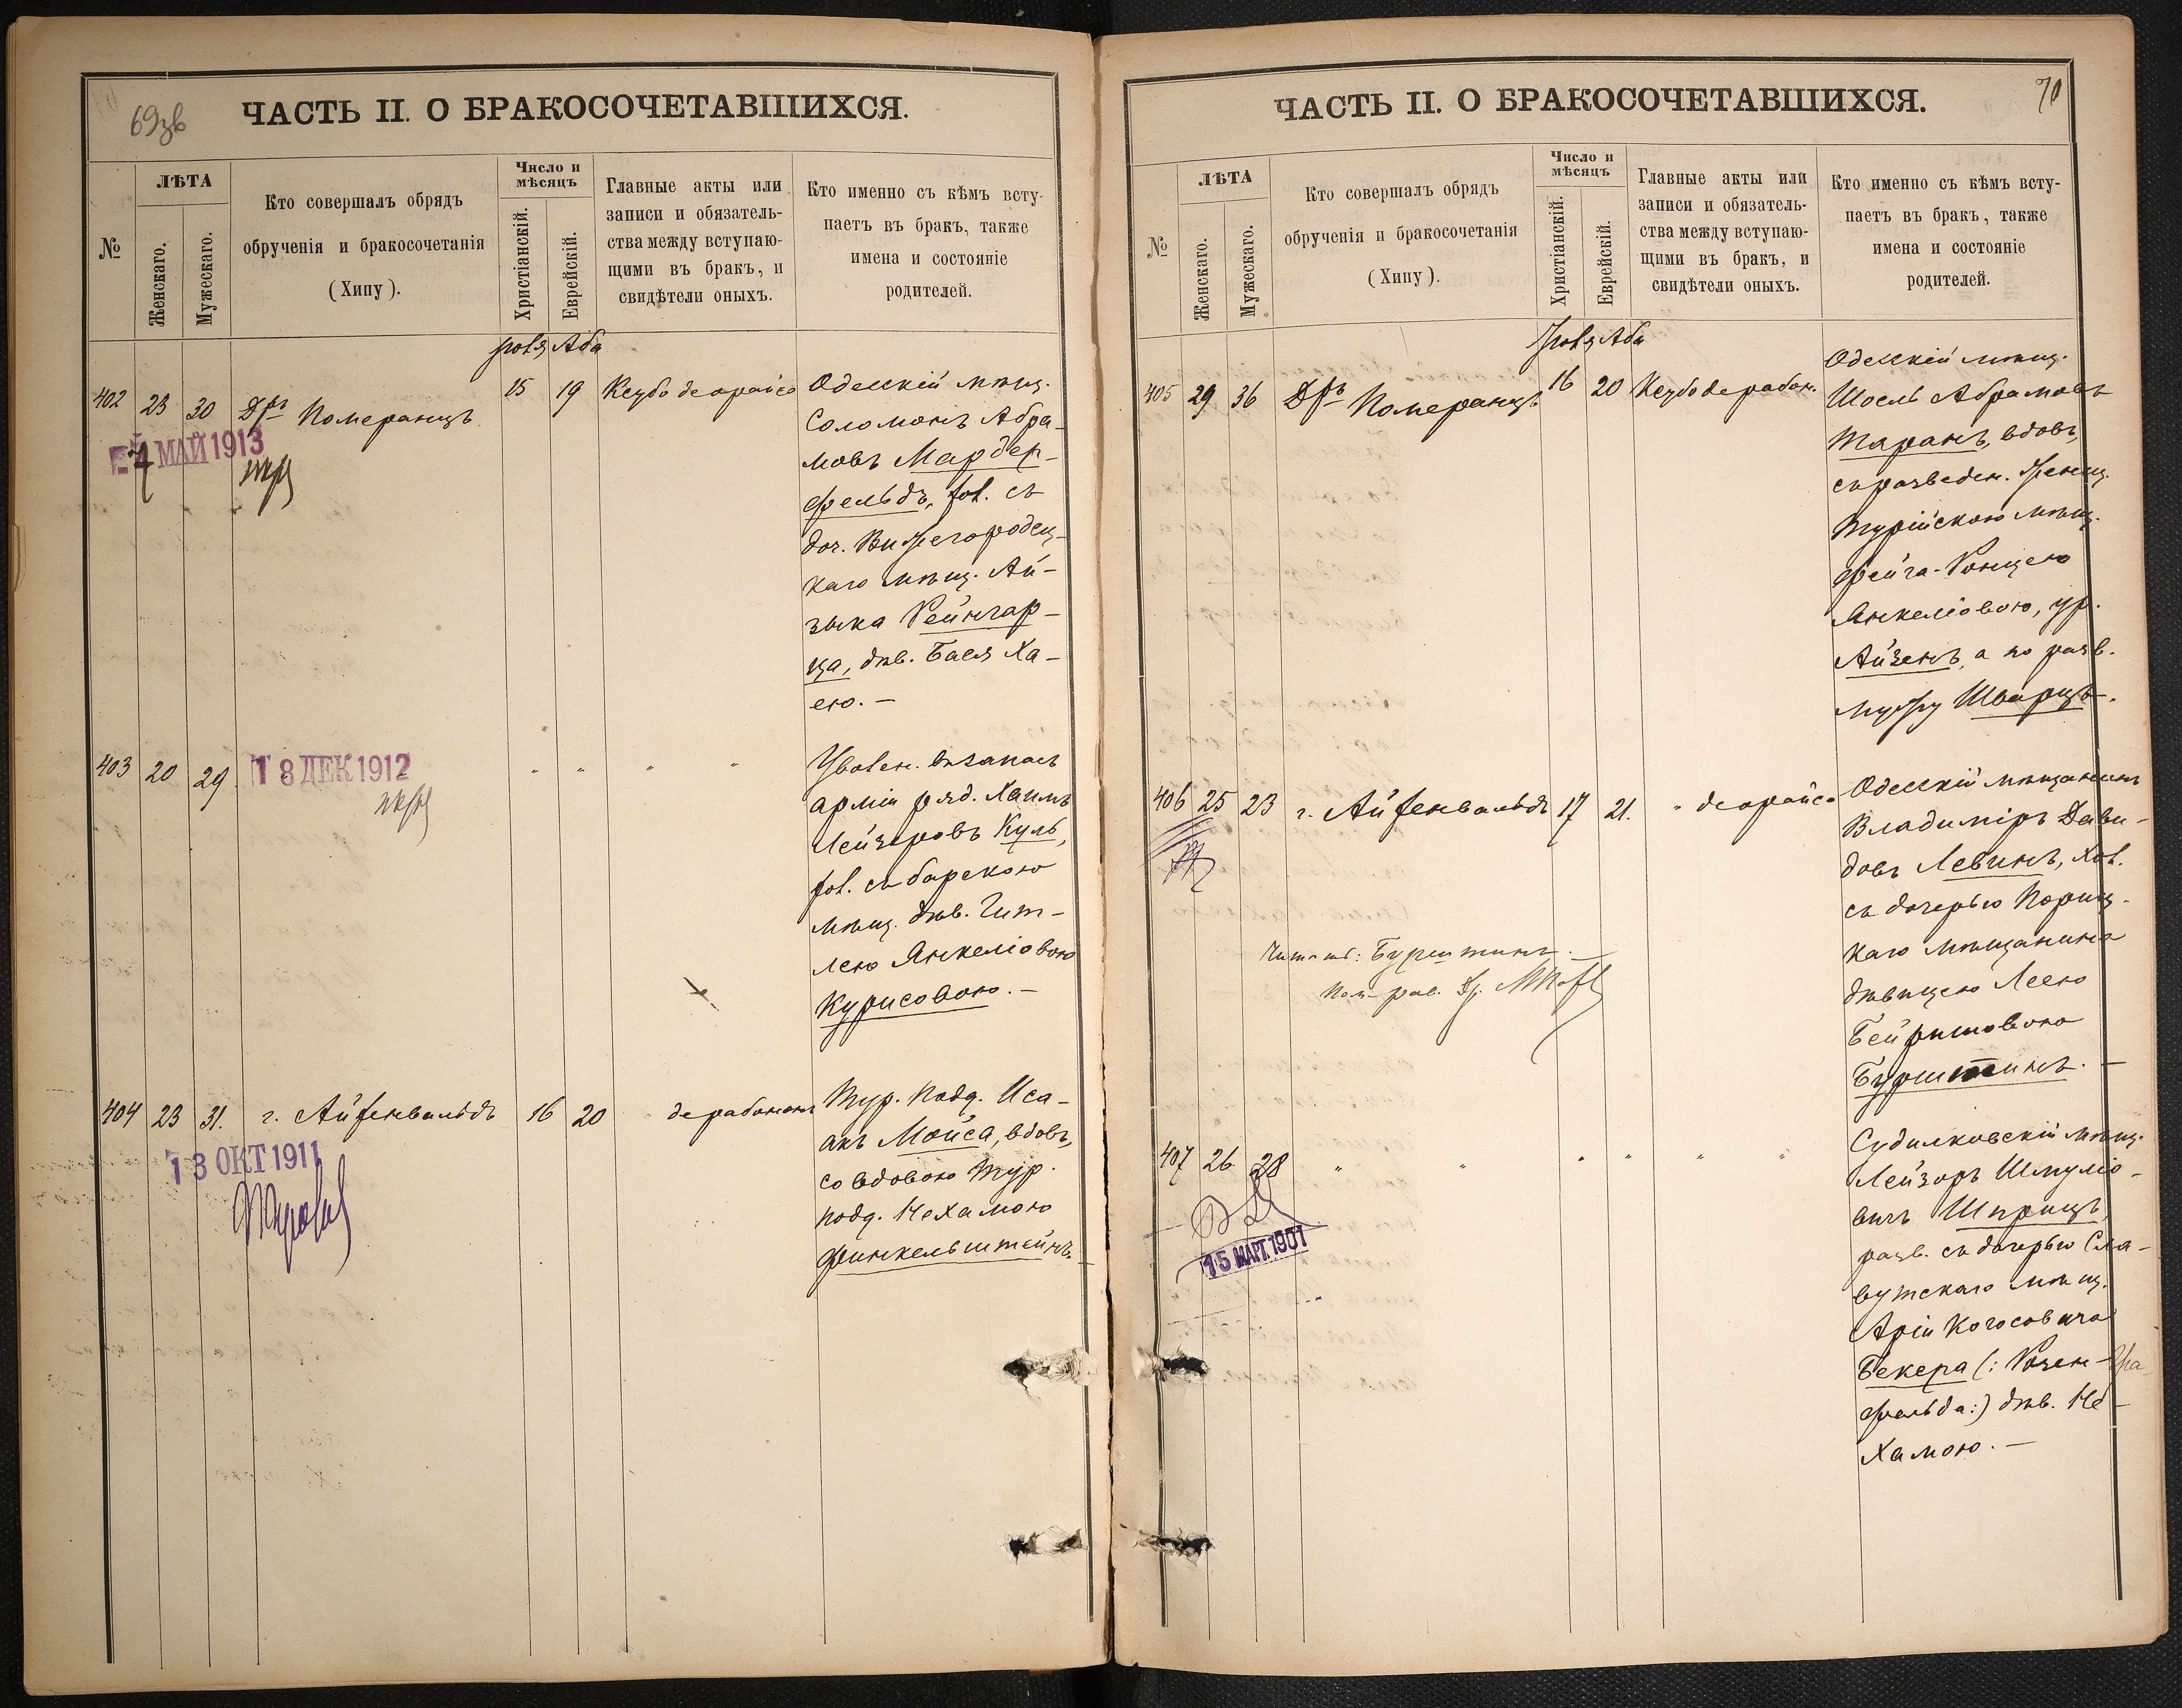 69зв
ЧАСТЬ II. О БРАКОСОЧЕТАВШИХСЯ.
№
ЛѢТА
Женскаго.
Мужескаго.
Кто совершалъ обрядъ
обрученія и бракосочетанія
(Хипу).
Число и
мѣсяцъ
Христіанскій.
Еврейскій.
Главные акты или
записи и обязатель-
ства между вступаю-
щими въ бракъ, и
свидѣтели оныхъ.
Кто именно съ кѣмъ всту-
паетъ въ бракъ, также
имена и состояніе
родителей.
Аба
402 23 30 Дръ Померанцъ 15 19 Кеубо деорайсо
МАЙ 1913
Одесскій мѣщ.
Соломонъ Абра-
мовъ Мардер-
фельдъ, хол. съ
доч. Вижегородец-
каго мѣщ. Ай-
зыка Рейнгар-
ца, дѣв. Бася Ха-
ею. –
403 20 29 " " " "
18 ДЕК 1912
Уволен. въ запасъ
арміи ряд. Хаимъ
Лейзеровъ Куль,
хол. съ барскою
мѣщ. дѣв. Гит-
лею Янкеліовою
Курисовою. –
404 23 31. г. Айзенвальдъ 16 20 дерабононъ
13 ОКТ 1911
Тур. подд. Иса-
акъ Мойса, вдовъ,
со вдовою тур.
подд. Нехамою
Финкельштейнъ. –
70
ЧАСТЬ II. О БРАКОСОЧЕТАВШИХСЯ.
№
ЛѢТА
Женскаго.
Мужескаго.
Кто совершалъ обрядъ
обрученія и бракосочетанія
(Хипу).
Число и
мѣсяцъ
Христіанскій.
Еврейскій.
Главные акты или
записи и обязатель-
ства между вступаю-
щими въ бракъ, и
свидѣтели оныхъ.
Кто именно съ кѣмъ всту-
паетъ въ бракъ, также
имена и состояніе
родителей.
Аба
405 29 36 Дръ Померанцъ 16 20 Кеубо дерабон.
Одесскій мѣщ.
Шоель Абрамовъ
Таранъ, вдовъ,
съ разведен. женщ.
Турійскою мѣщ.
Фейга-Ронцею
Янкеліовою, ур.
Айзенъ, а по разв.
мужу Шварцъ.
406 25 23 г. Айзенвальдъ 17 21. " деорайсо
Одесскій мѣщанинъ
Владиміръ Дави-
довъ Левинъ, хол.
съ дочерьюТориц-
каго мѣщанина
дѣвицею Леею
Бейришовою
Бурштинъ. –
Читать: Бурштинъ. –
407 26 28 " " " " " "
15 МАРТ. 1901
Судилковскій мѣщ.
Лейзоръ Шмуліо-
вичъ Шприцъ,
разв. съ дочерью Сла-
вутскаго мѣщ.
Арія Когосовича
Бекера (: Розен-
фельда:) дѣв. Не-
хамою. –